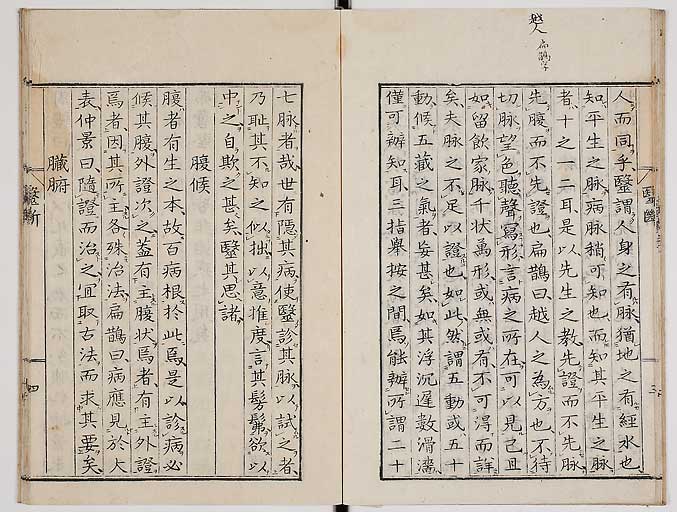 越人
扁鵲字
人而同乎毉謂人身之有脉猶地之有經水也
知平生之脉病脉稍可知也而知其平生之脉
者十之一二耳是以先生之教先證而不先脉
先腹而不先證也扁鵲曰越人之為方也不待
切脉望色聽聲寫形言病之所在可以見已且
如留飲家脉千狀萬形或無或有不可得而詳
矣夫脉之不足以證也如此然謂五動或五十
動候五藏之氣者妄甚矣如其浮沉遲數滑濇
僅可辨知耳三指舉按之間焉能辨所謂二十
七脉者哉世有隠其病使毉診其脉以試之者
乃耻其不知之似拙以意推度言其髣髴欲以
中之自欺之甚矣毉其思諸
腹候
腹者有生之本故百病根於此焉是以診病必
候其腹外證次之蓋有主腹状焉者有主外證
焉者因其所主各殊治法扁鵲曰病應見於大
表仲景曰隨證而治之宜取古法而求其要矣
臟腑
毉斷
四
毉斷
三